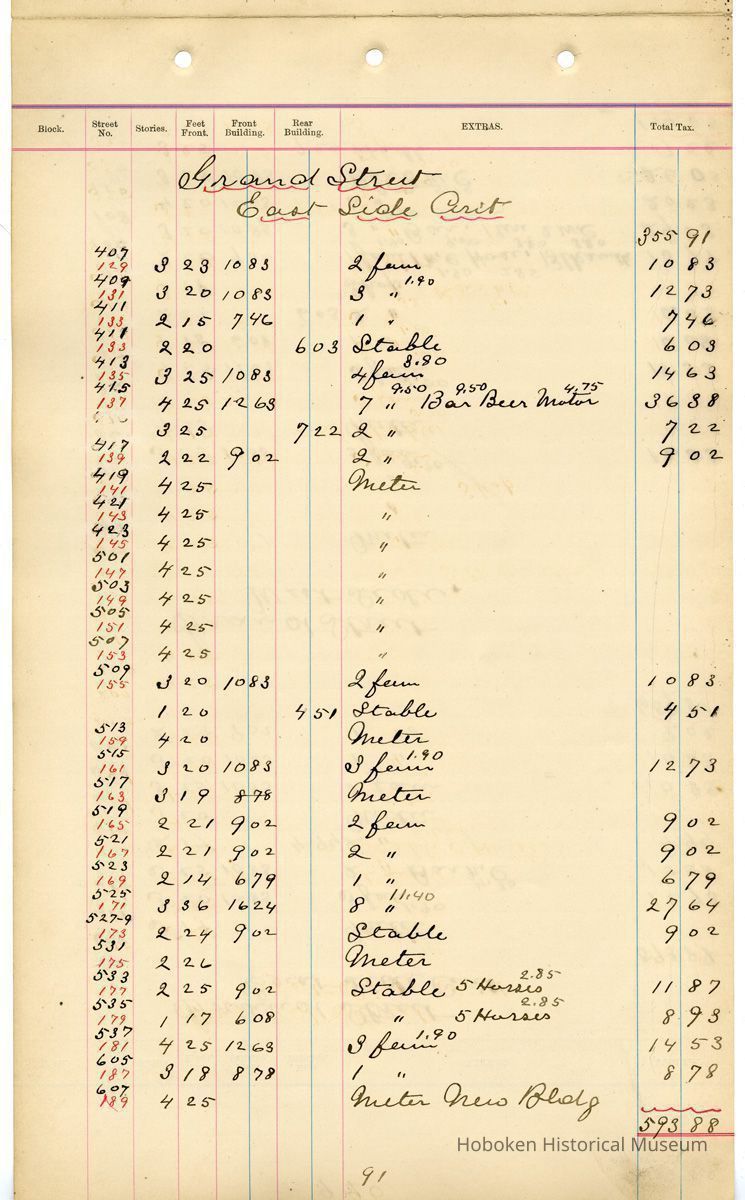 Block. Street No. Stories. Feet Front. Front Building. Rear Building. EXTRAS. Total Tax.
Grand Street
East Side Con't
355 91
407
129 3 23 10 83 2 fam 10 83
409 1.90
131 3 20 10 83 3 " 12 73
411
133 2 15 7 46 1 " 7 46
411
133 2 20 6 03 Stable 6 03
413 3.80
135 3 25 10 83 4 fam 14 63
415 9.50 9.50 4.75
137 4 25 12 63 7 " Bar Beer Motor 36 38
3 25 7 22 2 " 7 22
417
139 2 22 9 02 2 " 9 02
419
141 4 25 Meter
421
143 4 25 "
423
145 4 25 "
501
147 4 25 "
503
149 4 25 "
505
151 4 25 "
507
153 4 25 "
509
155 3 20 10 83 2 fam 10 83
1 20 4 51 Stable 4 51
513
159 4 20 Meter
515 1.90
161 3 20 10 83 3 fam 12 73
517
163 3 19 8 78 Meter
519
165 2 21 9 02 2 fam 9 02
521
167 2 21 9 02 2 " 9 02
523
169 2 14 6 79 1 " 6 79
525 11.40
171 3 36 16 24 8 " 27 64
527-9
173 2 24 9 02 Stable 9 02
531
175 2 26 Meter
533 2.85
177 2 25 9 02 Stable 5 Horses 11 87
535 2.85
179 1 17 6 08 " 5 Horses 8 93
537 1.90
181 4 25 12 63 3 fam 14 53
605
187 3 18 8 78 1 " 8 78
607
189 4 25 Meter New Bldg
593 88
Hoboken Historical Museum
91